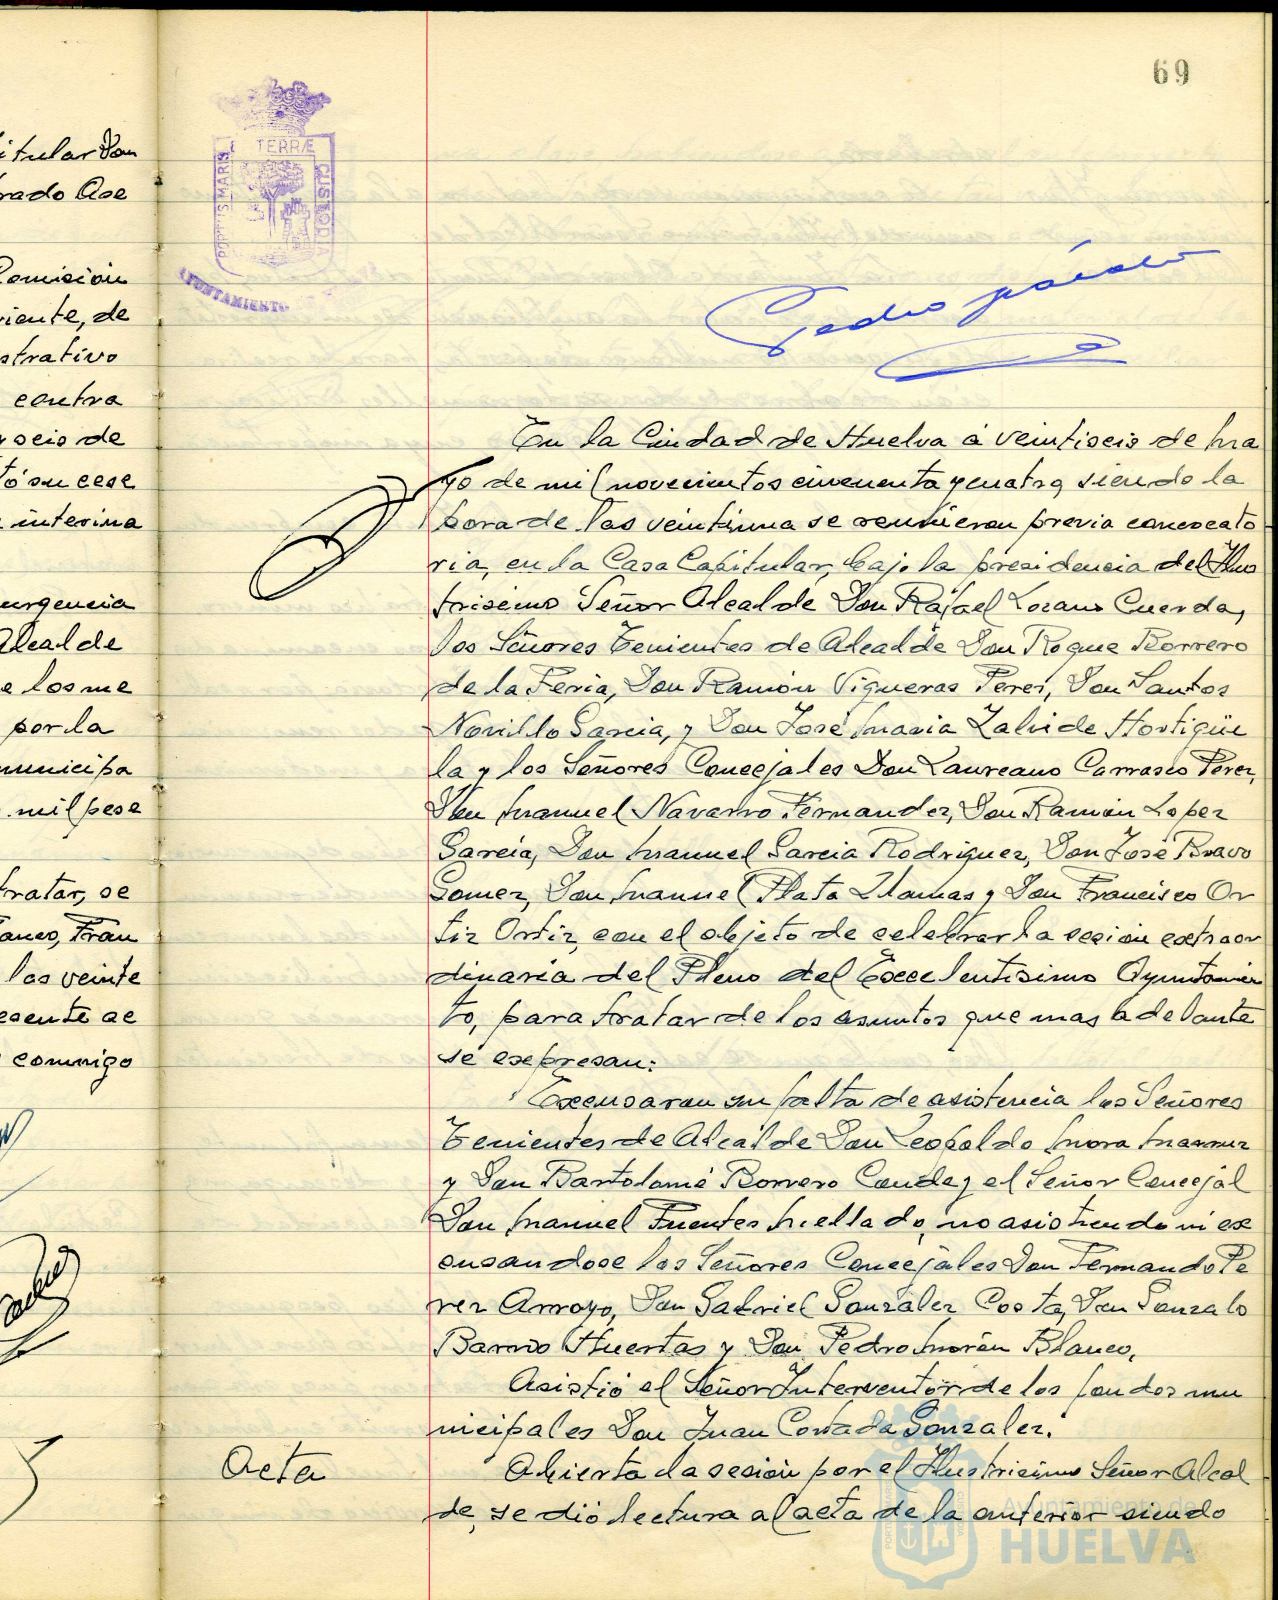 69
itular Don
rado Ase
Comisión
riente, de
strativo
contra
y seis de
tó su cese
interina
urgencia
Alcalde
e los me
por la
municipa
mil pese
tratar, se
Fran
las veinte
esente ac
conmigo
PORTUS MARIS TERRÆ CUSTODIA
AYUNTAMIENTO DE
Pedro
En la Ciudad de Huelva á veintiseis de ma
yo de mil novecientos cincuenta y cuatro, siendo la
hora de las veintiuna se reunieron previa convocato
ria, en la Casa Capitular, bajo la presidencia del Ilus
trisimo Señor Alcalde Don Rafael Lozano Cuerda,
los Señores Tenientes de Alcalde Don Roque Borrero
de la Feria, Don Ramón Vigueras Perez, Don Santos
Novillo Garcia, y Don José Maria Zalvide Hortigüe
la y los Señores Concejales Don Laureano Carrasco Perez,
Don Manuel Navarro Fernandez, Don Ramón Lopez
Garcia, Don Manuel Garcia Rodriguez, Don José Bravo
Gomez, Don Manuel Plata Llamas y Don Francisco Or
tiz Ortiz, con el objeto de celebrar la sesión extraor
dinaria del Pleno del Excelentisimo Ayuntamien
to, para tratar de los asuntos que mas adelante
se expresan:
Excusaron su falta de asistencia los Señores
Tenientes de Alcalde Don Leopoldo Mora
y Don Bartolomé Borrero Conde y el Señor Concejal
Don Manuel Fuentes Mellado, no asistiendo ni ex
cusandose los Señores Concejales Don Fernando Pe
rez Arroyo, Don Gabriel Gonzalez Costa, Don Gonzalo
Barrio Huertas y Don Pedro Morón Blanco.
Asistió el Señor Interventor de los fondos mu
nicipales Don Juan Gonzalez.
Acta
Abierta la sesión por el Ilustrisimo Señor Alcal
de, se dió lectura al acta de la anterior siendo
Ayuntamiento de
HUELVA